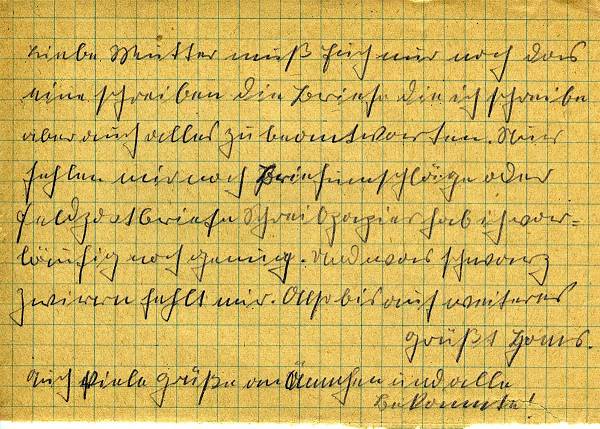 Liebe Mutter muß Euch nur noch das
eine schreiben die Briefe die ich schreibe
aber auch alles zu beantworten. Nun
fehlen mir noch Briefumschläge oder
Feldpostbriefe Schreibpapier hab ich vor=
läufig noch genug. und was schwarz
zwirn fehlt mir. Also bis auf weiteres
grüßt Hans.
Auch viele Grüße an Ännchen und alle
Bekannte!